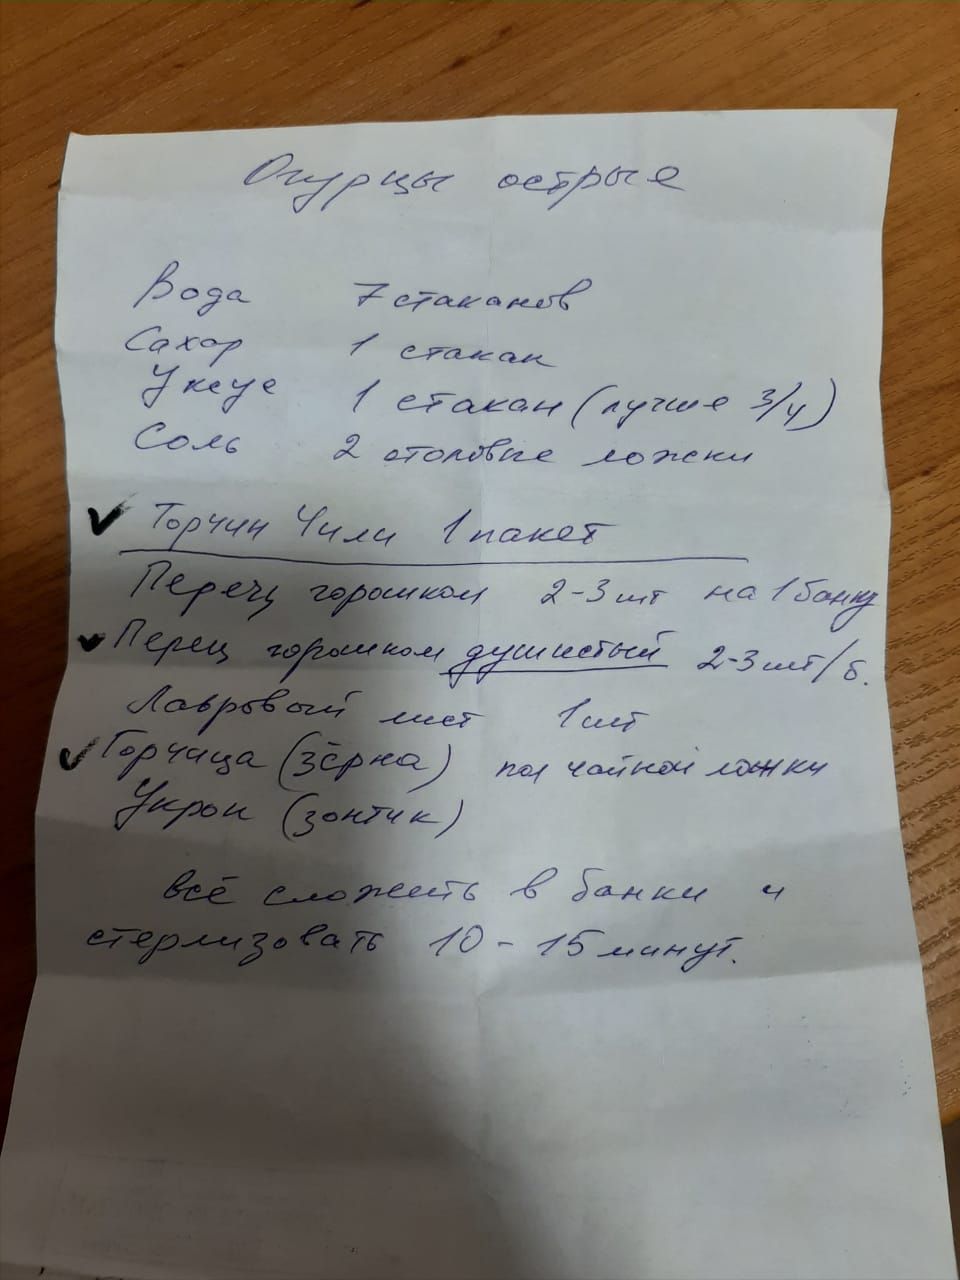 Огурцы острые
Вода 7 стаканов
Сахар 1 стакан
Уксус 1 стакан (лучше 3/4)
Соль 2 столовые ложки
✓ Торчин Чили 1 пакет
Перец горошком 2-3 шт на 1 банку
✓ Перец горошком душистый 2-3 шт/б.
Лавровый лист 1 шт
✓ Горчица (зёрна) пол чайной ложки
Укроп (зонтик)
всё сложить в банки и
стерлизовать 10-15 минут.